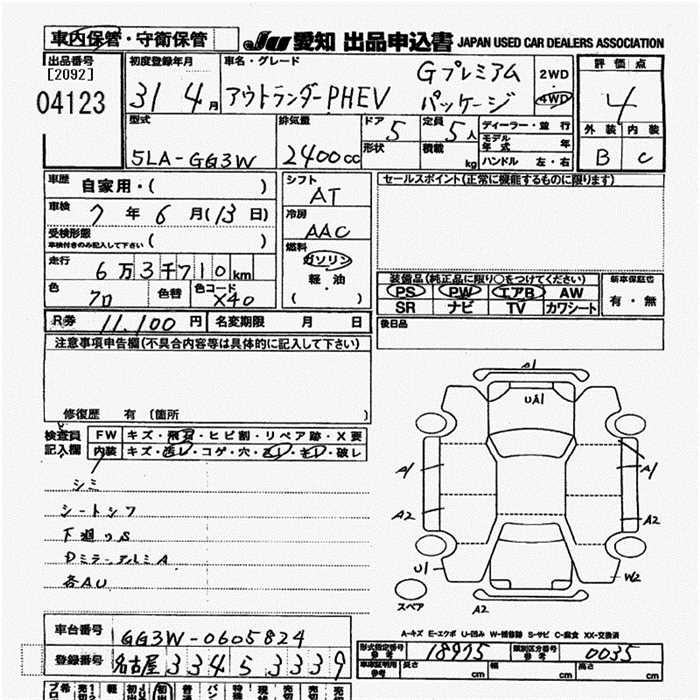 車内保管・守衛保管 JU 愛知 出品申込書 JAPAN USED CAR DEALERS ASSOCIATION
出品番号 [2092] 04123
初度登録年月 31 4月
車名・グレード アウトランダーPHEV Gプレミアム パッケージ
2WD 4WD
評価点 4
外装 内装
B C
型式 5LA-GG3W
排気量 2400cc
ドア 5 形状
定員 5人 積載 kg
ディーラー・並行
モデル年式 年
ハンドル 左・右
車歴 自家用・( )
車検 7年6月(13日)
受検形態 車検付きのみ記入して下さい ( )
走行 6万3千710km
色 クロ 色替 色コード X40
シフト AT
冷房 AAC
燃料 ガソリン
軽・油
( )
セールスポイント(正常に機能するものに限ります)
装備品(純正品に限り○をつけてください)
PS PW エアB AW
SR ナビ TV カワシート
新車保証書 有・無
後日品
R券 11,100円 名変期限 月 日
注意事項申告欄(不具合内容等は具体的に記入して下さい)
修復歴 有 (箇所 )
検査員記入欄
FW キズ・飛石・ヒビ割・リペア跡・X要
内装 キズ・汚レ・コゲ・穴・スレ・キレ・破レ
シミ
シートシワ
下廻りS
DミラーアルミA
各AU
A1
UA1
A1
A1
A2
A2
U1
W2
A2
スペア
A-キズ E-エクボ U-凹み W-補修跡 S-サビ C-腐食 XX-交換済
車台番号 GG3W-0605824
登録番号 名古屋 334 5 3339
型式指定番号 参考 18975 類別区分番号 参考 0035
車庫証明用 参考 長さ cm 幅 cm 高さ cm